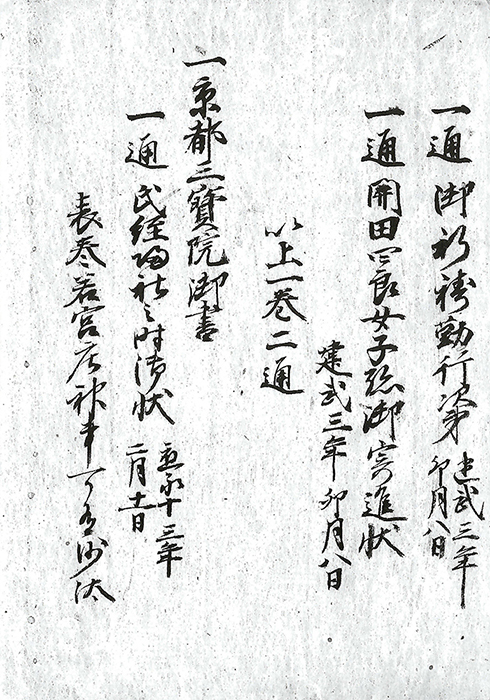 一通 御祈祷勤行次第 建武三年
卯月八日
一通 開田四郎女子 御寄進状
建武三年 卯月八日
以上一巻二通
一京都三寳院御書
一通 氏経 社之時御状 応永十三年
二月十一日
若宮 神 可 沙汰